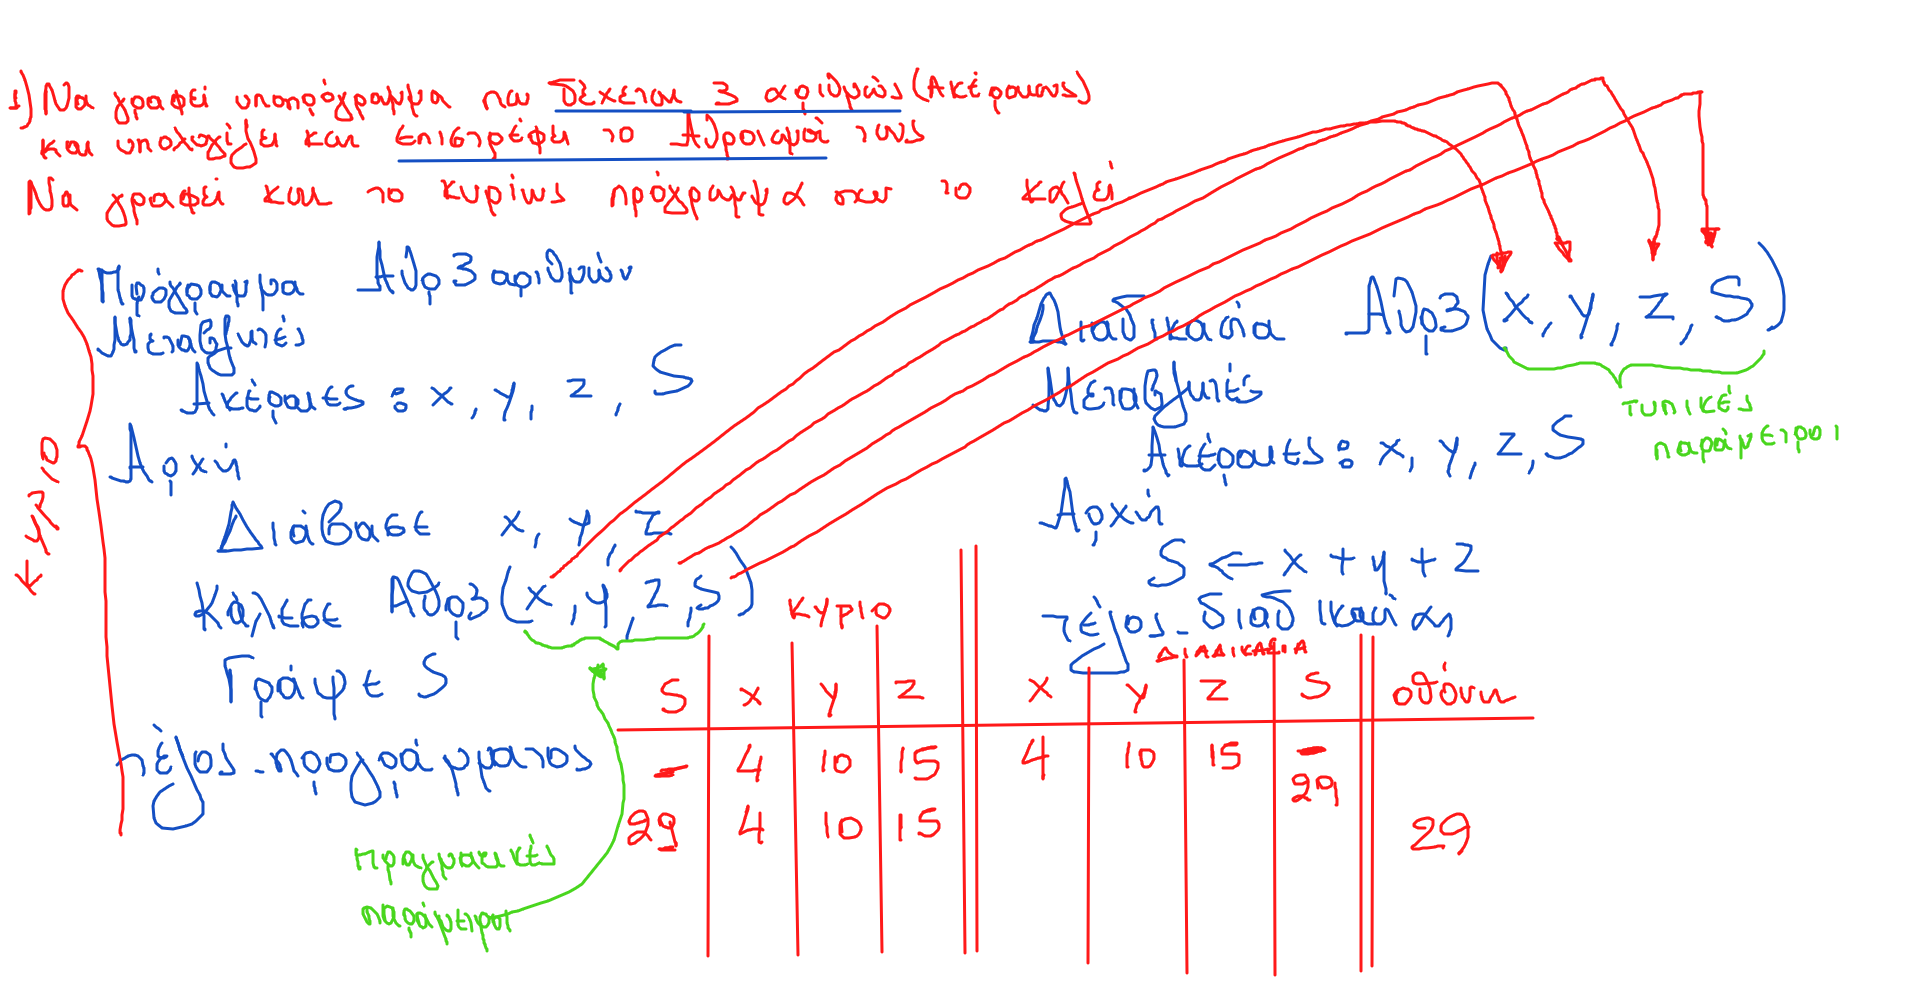 1) Να γραφεί υποπρόγραμμα που δέχεται 3 αριθμούς (Ακέραιους)
και υπολογίζει και επιστρέφει το Άθροισμά τους
Να γραφεί και το κυρίως πρόγραμμα που το καλεί
Πρόγραμμα Αθρ3αριθμών
Μεταβλητές
Ακέραιες : x, y, z, S
Αρχή
Διάβασε x, y, z
Κάλεσε Αθρ3(x, y, z, S)
Γράψε S
τέλος_προγράμματος
κύριο
πραγματικές
παράμετροι
Διαδικασία Αθρ3(x, y, z, S)
τυπικές
παράμετροι
Μεταβλητές
Ακέραιες : x, y, z, S
Αρχή
S ← x + y + z
τέλος_διαδικασίας
ΚΥΡΙΟ ΔΙΑΔΙΚΑΣΙΑ
S x y z x y z S οθόνη
- 4 10 15 4 10 15 -
29
29 4 10 15 29